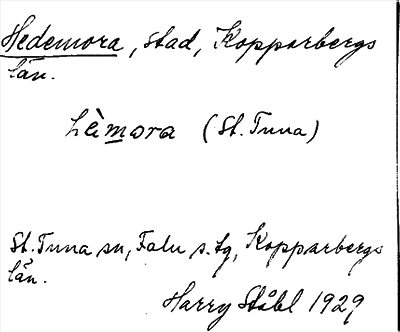 Hedemora, stad, Kopparbergs
län.
Lèmora (St. Tuna)
St. Tuna sn, Falu s. tg, Kopparbergs
län.
Harry Ståhl 1929